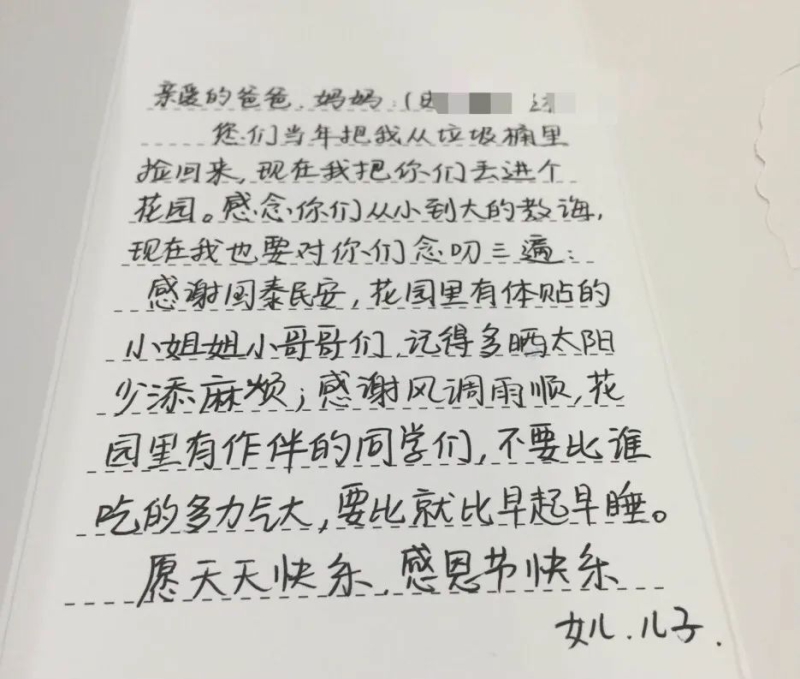 亲爱的爸爸、妈妈：(
您们当年把我从垃圾桶里
捡回来，现在我把你们丢进个
花园。感念你们从小到大的教诲，
现在我也要对你们念叨三遍：
感谢国泰民安，花园里有体贴的
小姐姐小哥哥们，记得多晒太阳
少添麻烦；感谢风调雨顺，花
园里有作伴的同学们，不要比谁
吃的多力气大，要比就比早起早睡。
愿天天快乐，感恩节快乐
女儿．儿子．